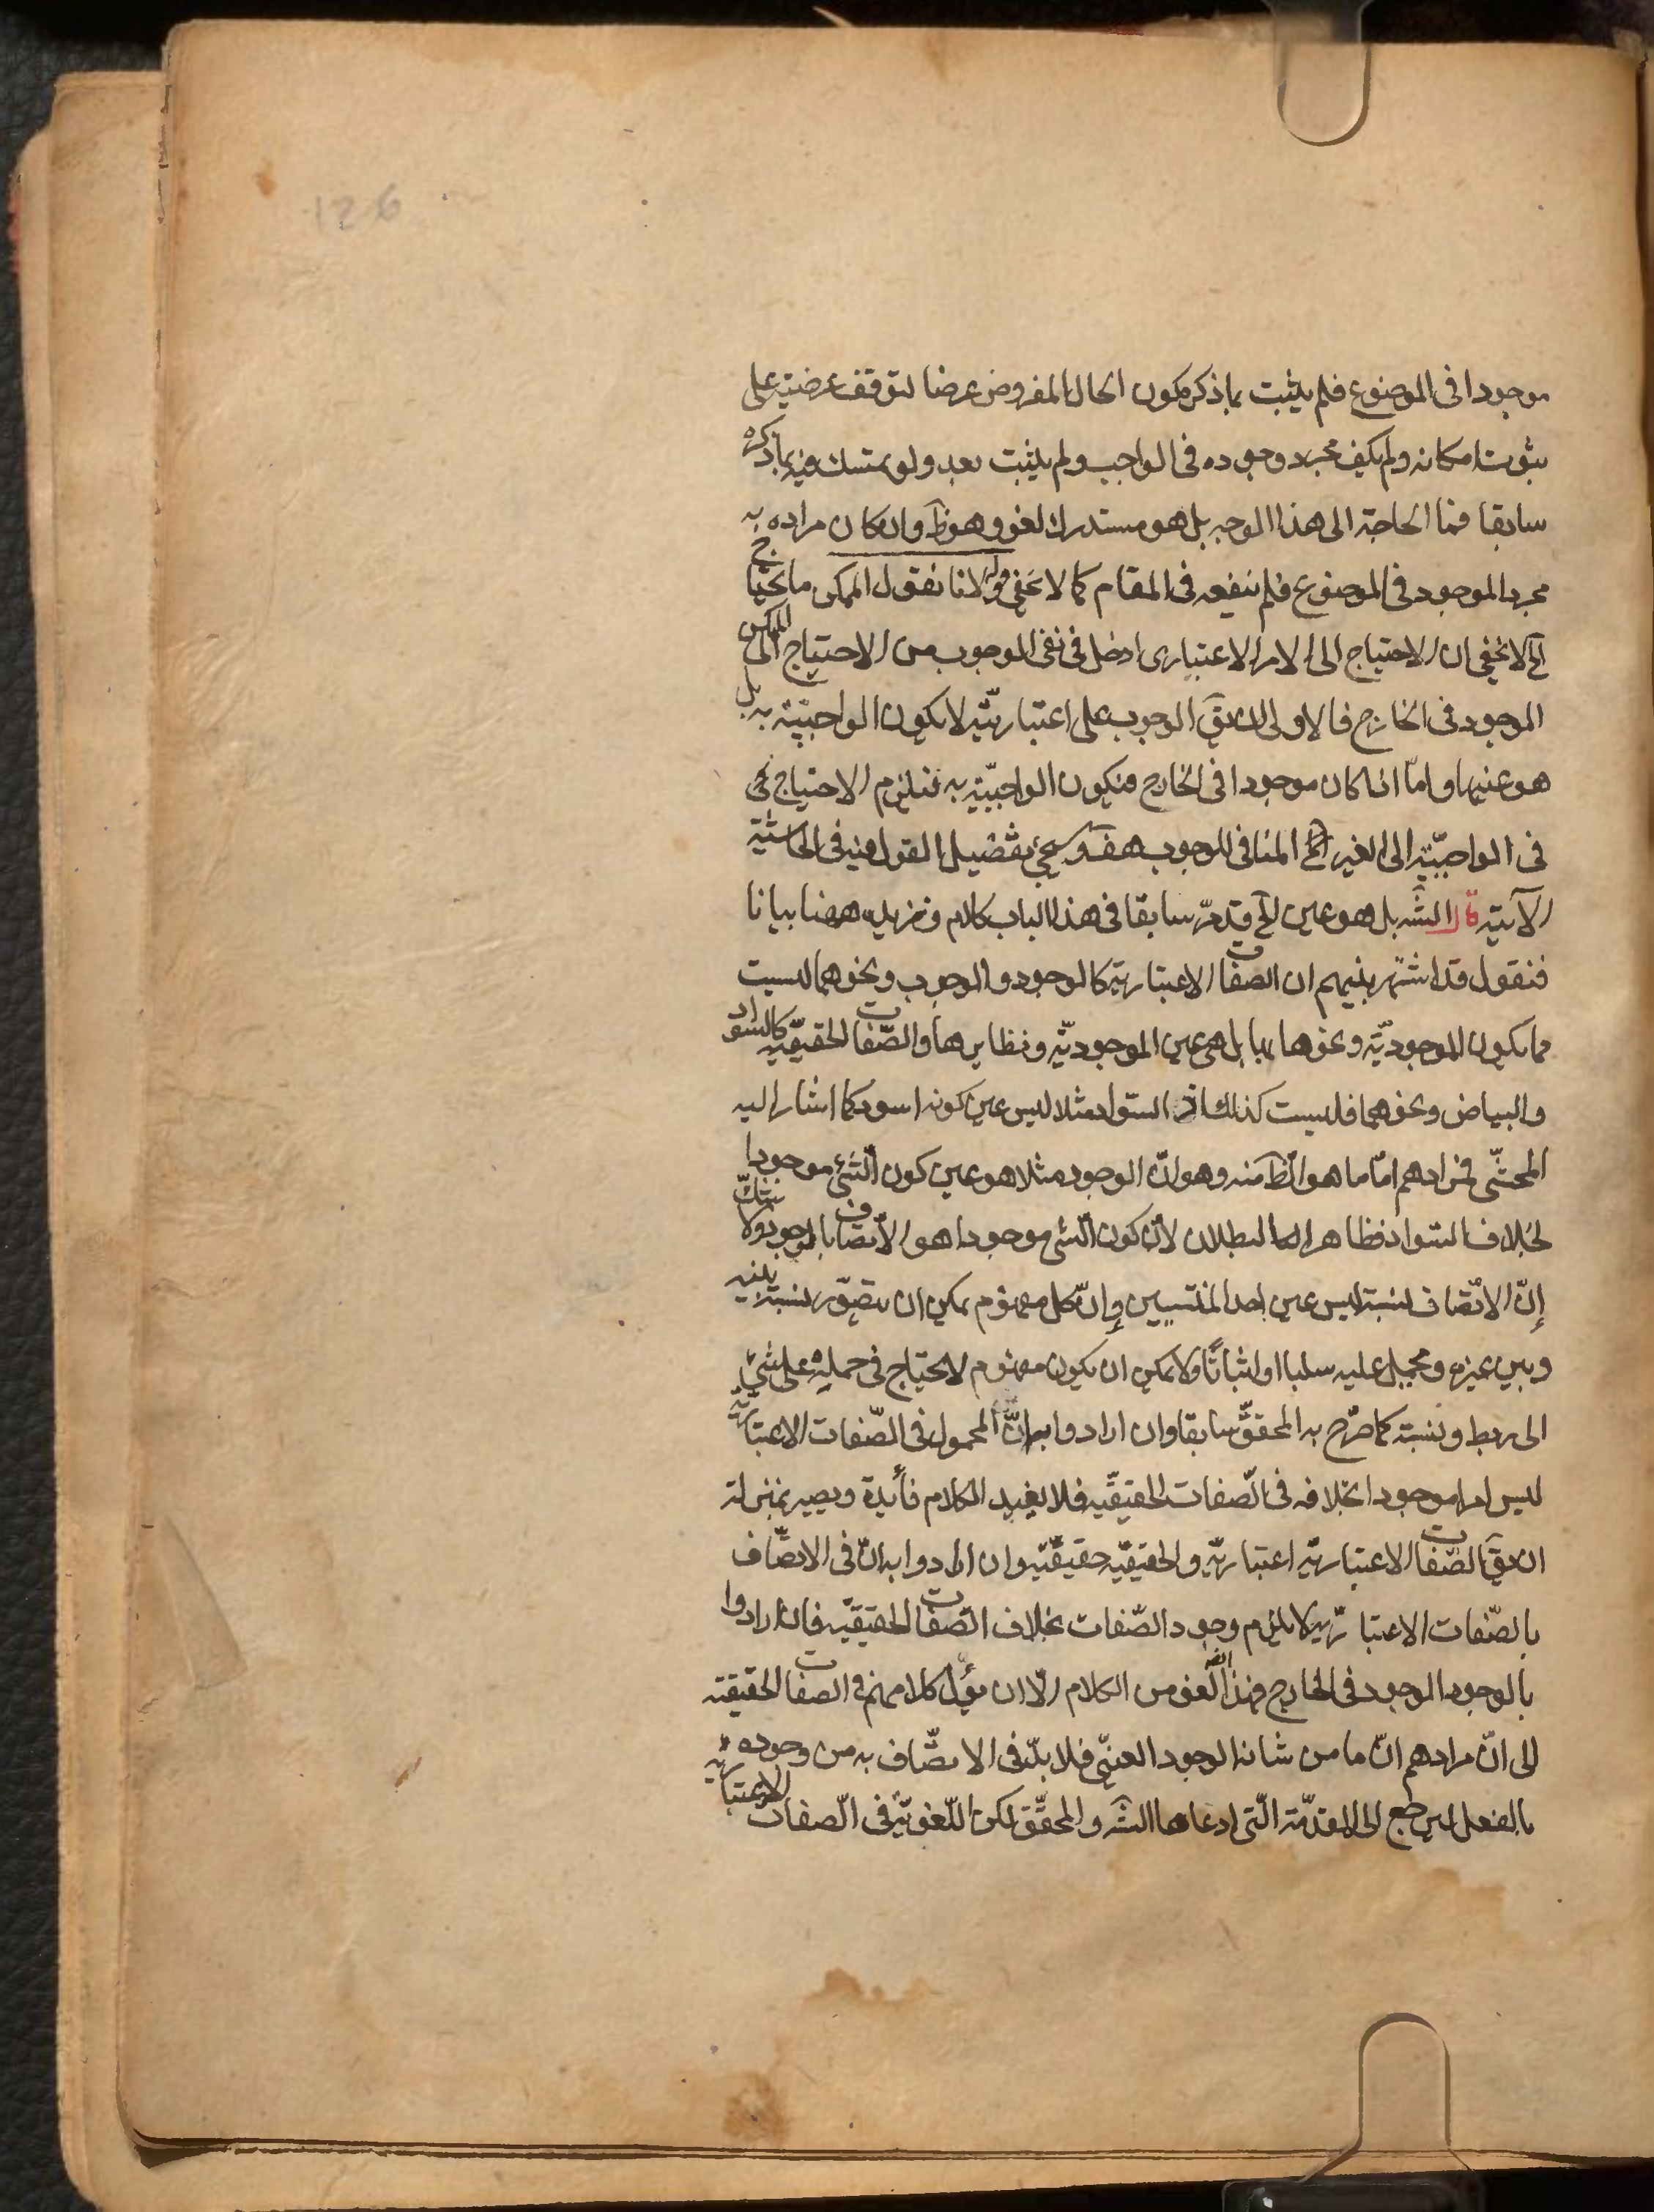 126
موجودا فى الموضوع فلم يثبت بما ذكر كون الحال المفروض عرضا لتوقف عرضيته على
ثبوت امكانه ولم يكف مجرد وجوده فى الواجب ولم يثبت بعد ولو تمسك فيه بما ذكره
سابقا فما الحاجة الى هذا الوجه بل هو مستدرك لغو وهو ظ وان كان مراده به
مجرد الموجود فى الموضوع فلم ينفعه فى المقام كما لا يخفى قوله لانا نقول الممكن ما يحتاج
الخ لا يخفى ان الاحتياج الى الامر الاعتبارى ادخل فى نفى الوجوب من الاحتياج الى
الموجود فى الخارج فالاولى ان يق الوجوب على اعتباريته لا يكون الواجبية به بل
هو عينها واما اذا كان موجودا فى الخارج فيكون الواجبية به فيلزم الاحتياج
فى الواجبية الى الغير المنافى للوجوب هف وسيجئ تفضيل القول فيه فى الحاشية
الآتية قال الش بل هو عين الخ قد مر سابقا فى هذا الباب كلام ونزيده ههنا بيانا
فنقول قد اشتهر بينهم ان الصفات الاعتبارية كالوجود والوجوب ونحوهما ليست
مما يكون الموجودية ونحوها بها بل هى عين الموجودية ونظايرها والصفات الحقيقية كالسواد
والبياض ونحوهما فليست كذلك اذ السواد مثلا ليس عين كونه اسود كما اشار اليه
المحشى فمرادهم اما ما هو الظ منه وهو ان الوجود مثلا هو عين كون الشئ موجودا
بخلاف السواد فظاهر البطلان لان كون الشئ موجودا هو الاتصاف بالوجود ولا شك
إن الاتصاف لنسبة ليس عين احد المنتسبين وإن كل مفهوم يمكن ان يتصور لنسبة بينه
وبين غيره ويحمل عليه سلبا او اثباتا ولا يمكن ان يكون مفهوم لا يحتاج فى حمله على شئ
الى ربط ونسبة كما صرح به المحقق سابقا وان ارادوا به ان المحمول فى الصفات الاعتبارية
ليس امرا موجودا بخلافه فى الصفات الحقيقية فلا يفيد الكلام فائدة ويصير بمنزلة
ان يق الصفات الاعتبارية اعتبارية والحقيقية حقيقية وان ارادوا به ان فى الاتصاف
بالصفات الاعتبارية لا يلزم وجود الصفات بخلاف الصفات الحقيقية فان ارادوا
بالوجود الوجود فى الخارج فهذا ايضا لغو من الكلام الا ان يؤل كلامهم فى الصفات الحقيقة
الى ان مرادهم ان ما من شانه الوجود العينى فلا بد فى الاتصاف به من وجوده
بالفعل ليرجع الى المقدمة التى ادعاها الش والمحقق لكن اللغوية فى الصفات الاعتبارية